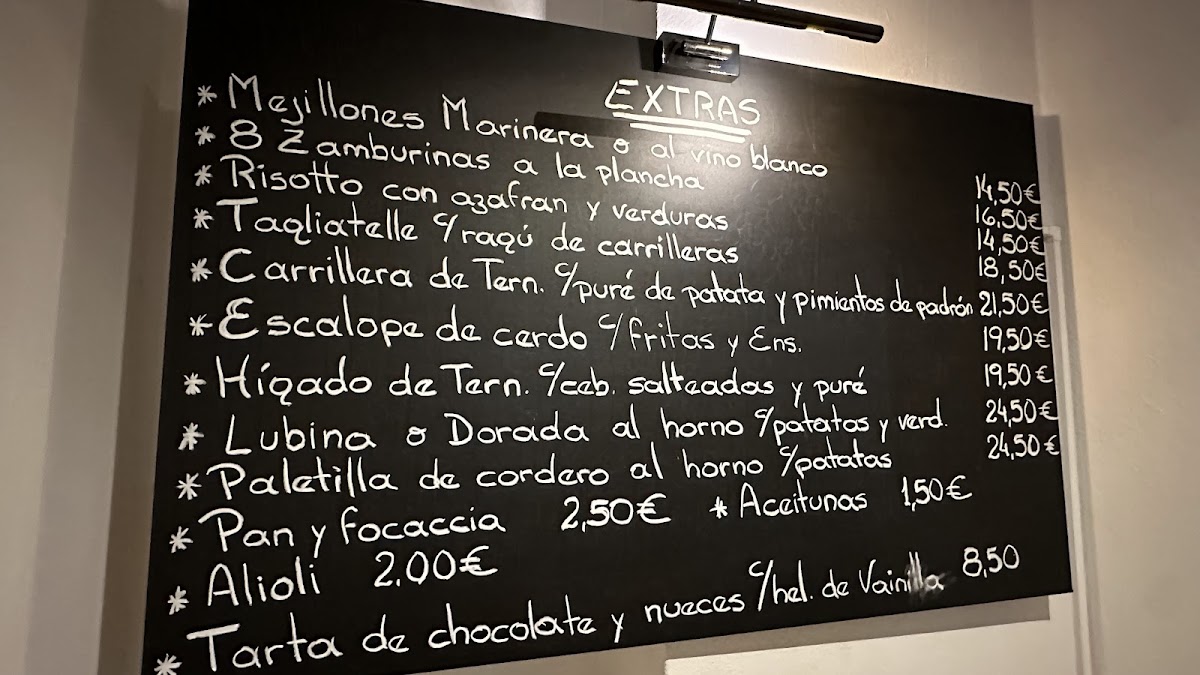 EXTRAS
* Mejillones Marinera o al vino blanco 14,50€
* 8 Zamburinas a la plancha 16,50€
* Risotto con azafran y verduras 14,50€
* Tagliatelle c/ragú de carrilleras 18,50€
* Carrillera de Tern. c/puré de patata y pimientos de padrón 21,50€
* Escalope de cerdo c/fritas y Ens. 19,50€
* Hígado de Tern. c/ceb. salteadas y puré 19,50€
* Lubina o Dorada al horno c/patatas y verd. 24,50€
* Paletilla de cordero al horno c/patatas 24,50€
* Pan y focaccia 2,50€ * Aceitunas 1,50€
* Alioli 2.00€
* Tarta de chocolate y nueces c/hel. de Vainilla 8,50